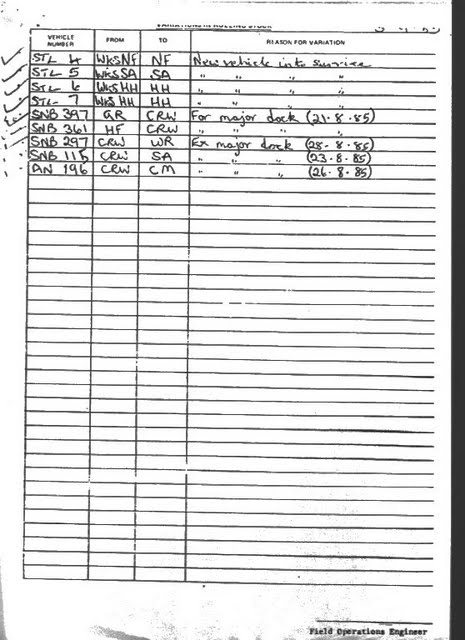 VARIATIONS IN ROLLING STOCK
VEHICLE NUMBER FROM TO REASON FOR VARIATION
STL 4 WKSNF NF New vehicle into survice
STL 5 WKSSA SA " " " "
STL 6 WKSHH HH " " " "
STL-7 WKSHH HH " " " "
SNB 397 GR CRW For major dock (21-8-85)
SNB 361 HF CRW " " " "
SNB 297 CRW WR Ex major dock (28-8-85)
SNB 115 CRW SA " " " (23-8-85)
AN 196 CRW CM " " " (26-8-85)
Field Operations Engineer